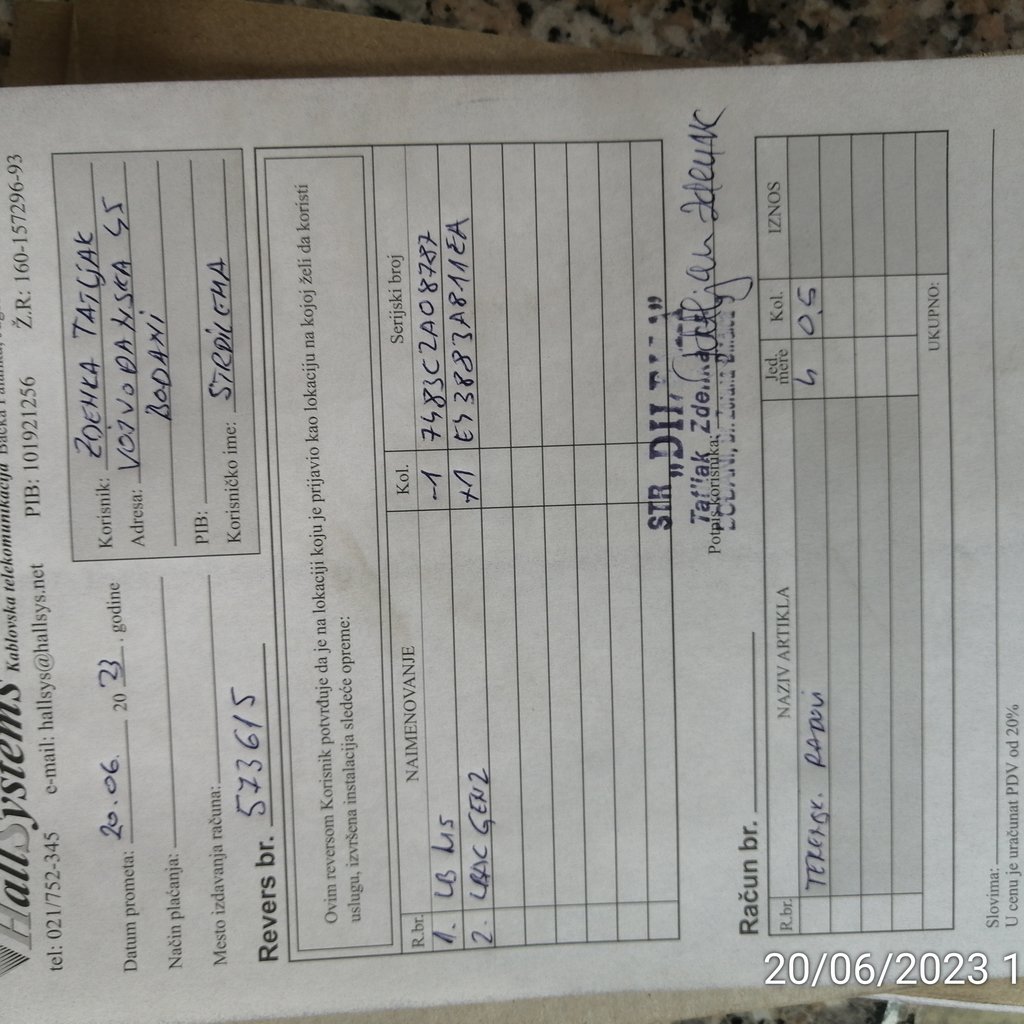 HallSystems Kablovska telekomunikacija Bačka Palanka,
tel: 021/752-345 e-mail: hallsys@hallsys.net PIB: 101921256 Ž.R: 160-157296-93
Datum prometa: 20.06. 20 23. godine
Način plaćanja:
Mesto izdavanja računa:
Korisnik: ZDENKA TATLJAK
Adresa: VOJVOĐANSKA 45
BOĐANI
PIB:
Korisničko ime:
Revers br. 573615
Ovim reversom Korisnik potvrđuje da je na lokaciji koju je prijavio kao lokaciju na kojoj želi da koristi
uslugu, izvršena instalacija sledeće opreme:
R.br. NAIMENOVANJE Kol. Serijski broj
1. LB M5 -1 7483C2A08787
2. LBAC GEN2 +1 E43883A811EA
STR „DILI
Potpis korisnika:
Račun br.
R.br. NAZIV ARTIKLA Jed. mere Kol. IZNOS
TERENSK. RADOVI h 0,5
UKUPNO:
Slovima:
U cenu je uračunat PDV od 20%
20/06/2023 1